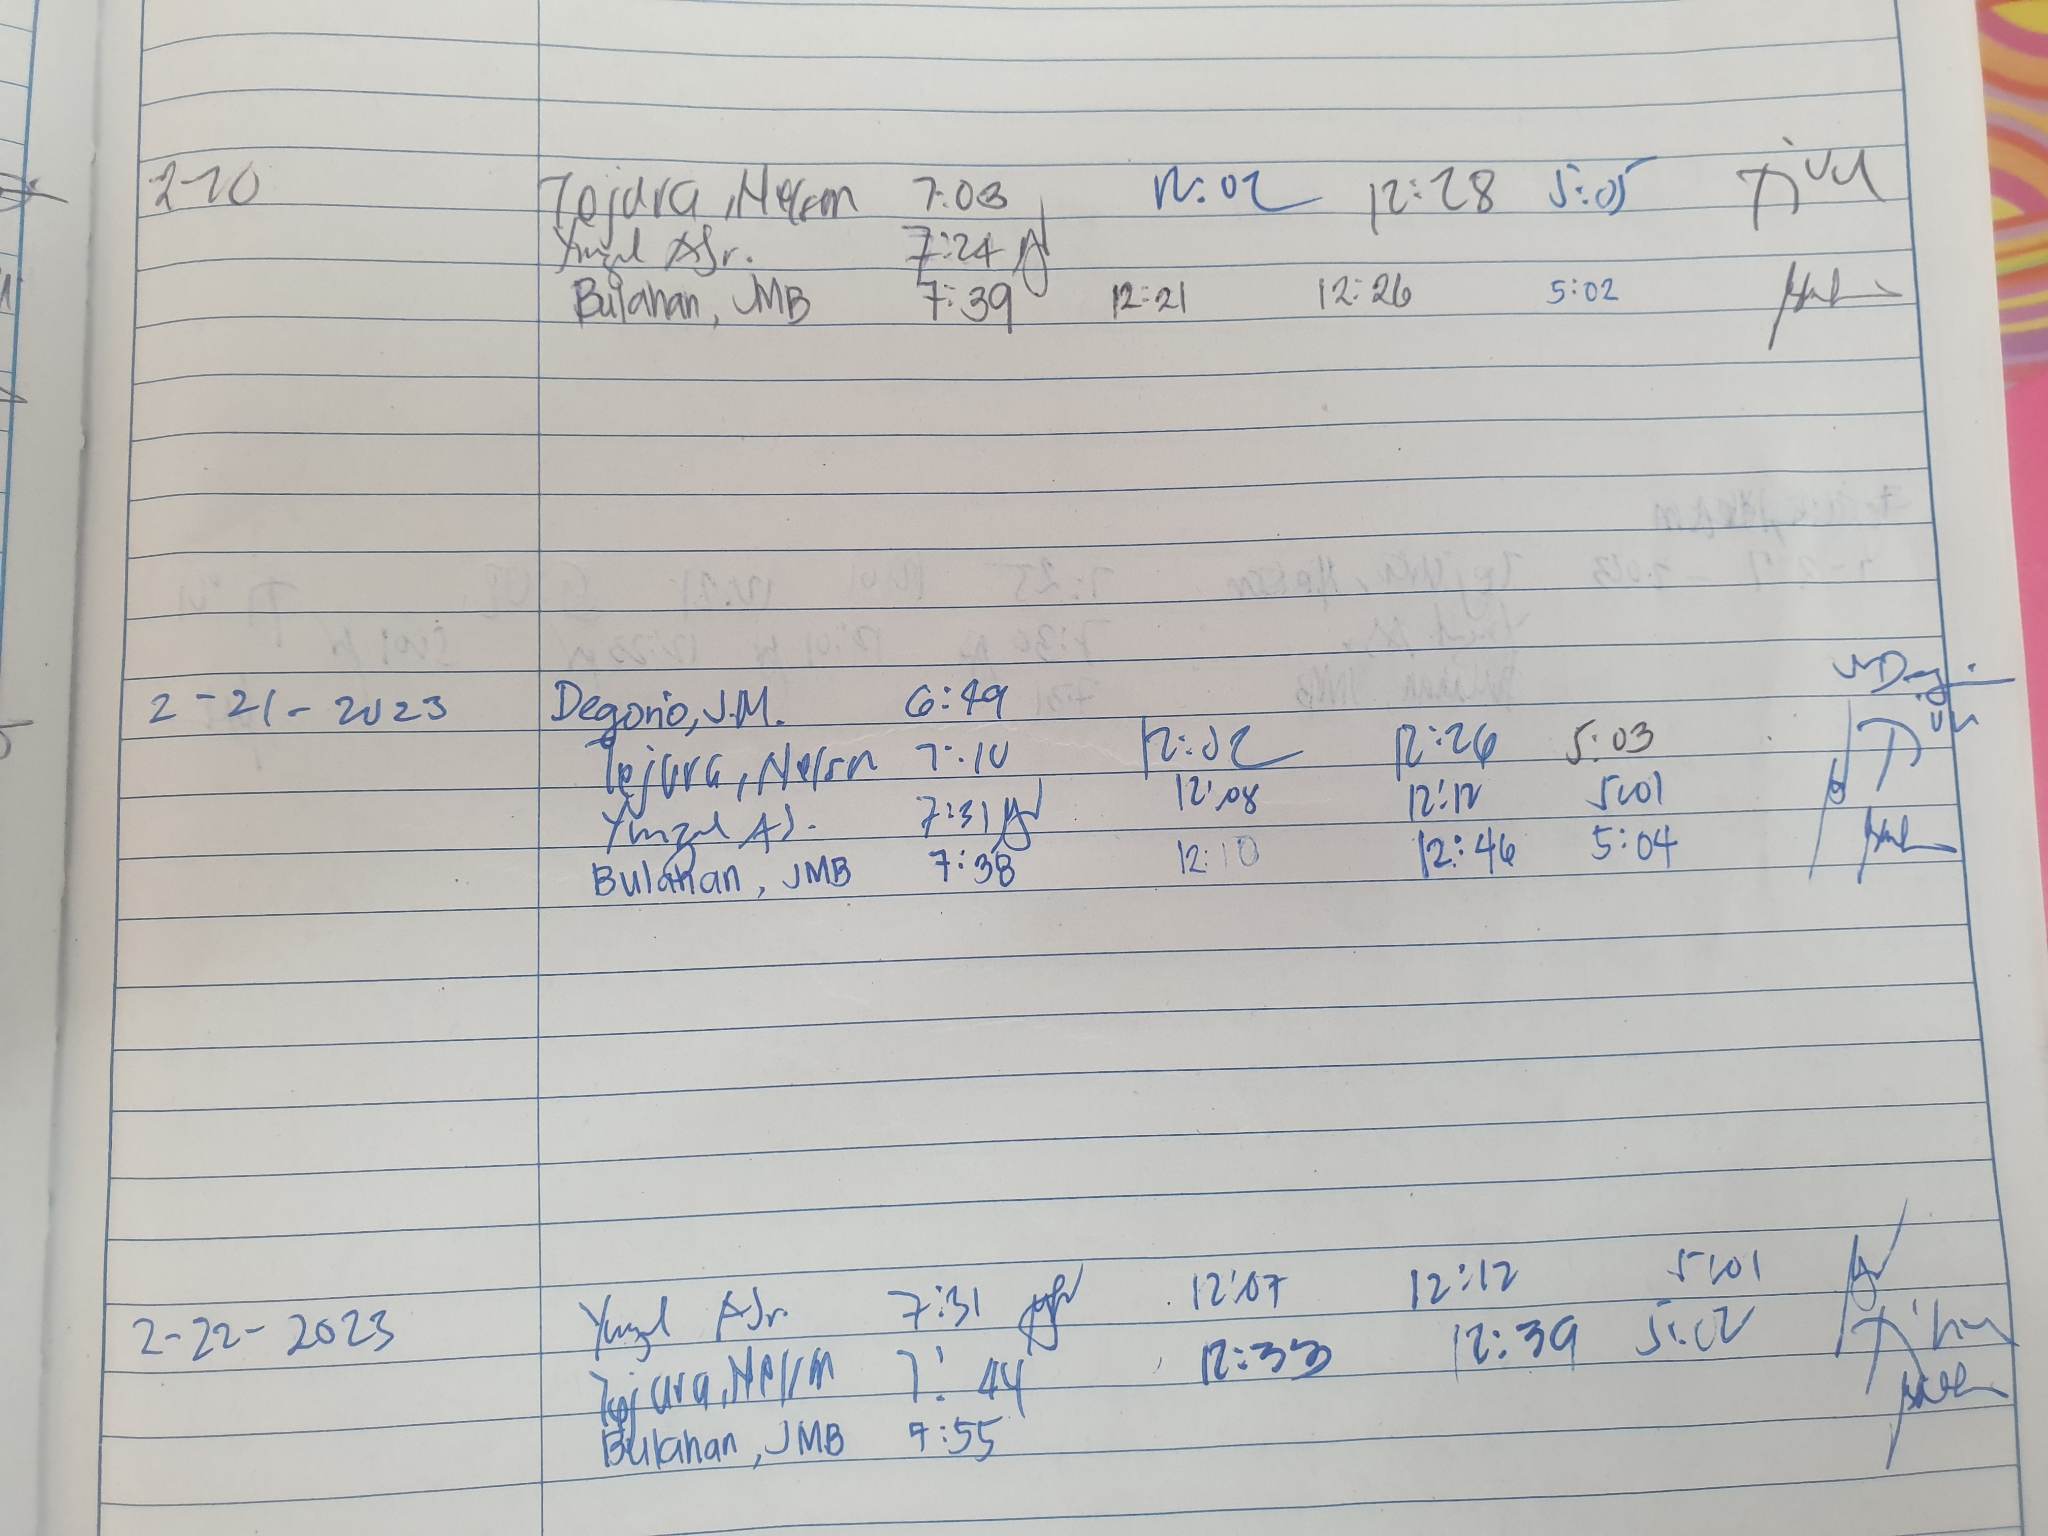 2-20 Tejara, Nelson 7:03 12:02 12:28 5:05
Ynzal AJr. 7:24
Bulahan, JMB 7:39 12:21 12:26 5:02
2-21-2023 Degorio, J.M. 6:49
Tejara, Nelson 7:10 12:02 12:26 5:03
Ynzal AJ. 7:31 12:08 12:12 5:01
Bulahan, JMB 7:38 12:10 12:46 5:04
2-22-2023 Ynzal AJr. 7:31 12:07 12:12 5:01
Tejara, Nelson 7:44 12:33 12:39 5:02
Bulahan, JMB 7:55